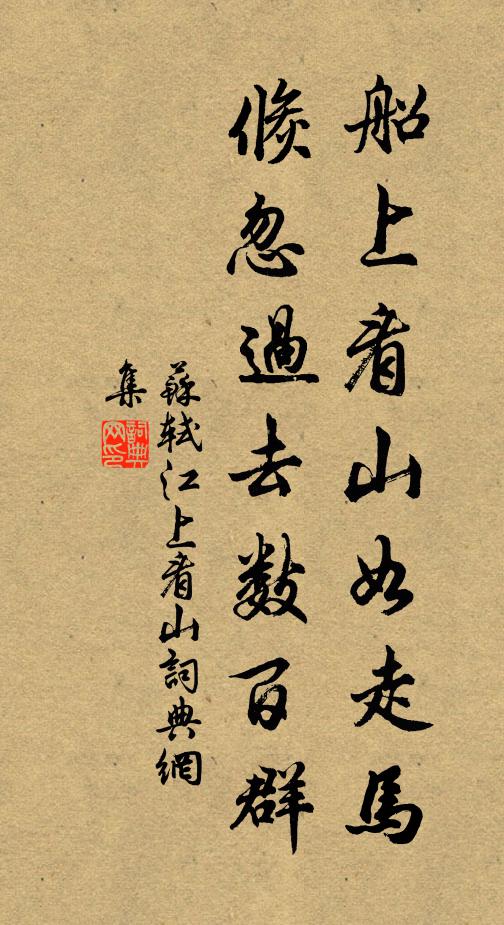 船上看山如走馬
倏忽過去數百群
蘇軾江上看山詞典網
集
詞典網印